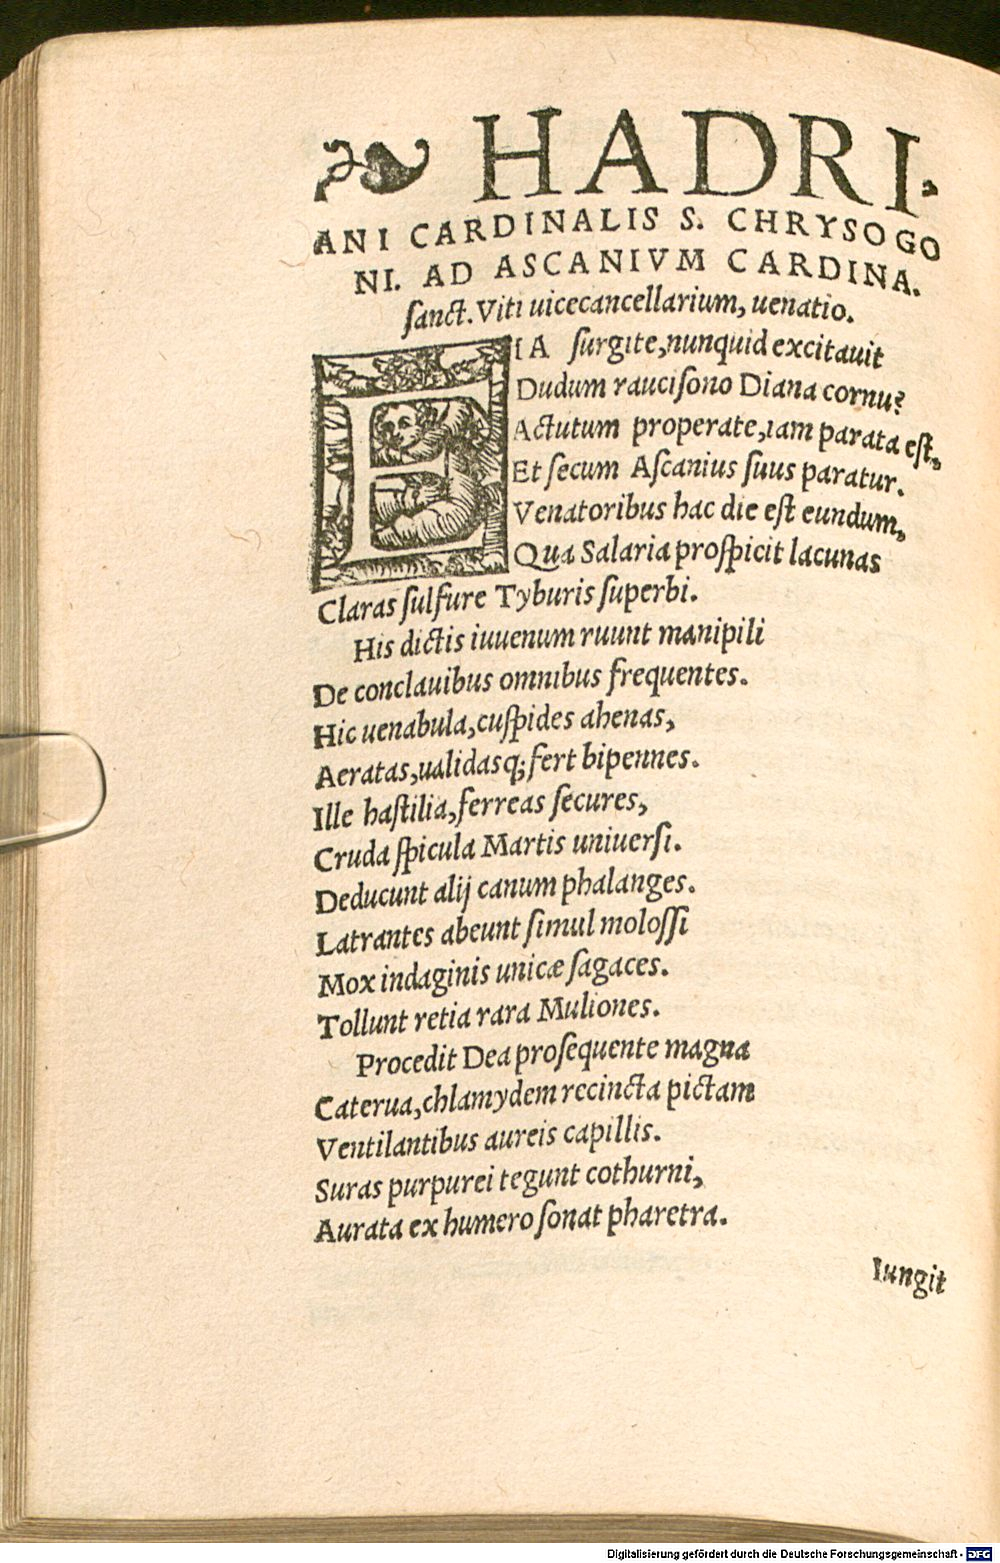 HADRI-
ANI CARDINALIS S. CHRYSOGO
NI. AD ASCANIVM CARDINA.
ſanct. Viti uicecancellarium, uenatio.
EIA ſurgite, nunquid excitauit
Dudum rauciſono Diana cornu?
Actutum properate, iam parata eſt,
Et ſecum Aſcanius ſuus paratur.
Venatoribus hac die eſt eundum,
Qua Salaria proſpicit lacunas
Claras ſulfure Tyburis ſuperbi.
His dictis iuuenum ruunt manipili
De conclauibus omnibus frequentes.
Hic uenabula, cuſpides ahenas,
Aeratas, ualidasq; fert bipennes.
Ille haſtilia, ferreas ſecures,
Cruda ſpicula Martis uniuerſi.
Deducunt alij canum phalanges.
Latrantes abeunt ſimul moloſſi
Mox indaginis unicæ ſagaces.
Tollunt retia rara Muliones.
Procedit Dea proſequente magna
Caterua, chlamydem recincta pictam
Ventilantibus aureis capillis.
Suras purpurei tegunt cothurni,
Aurata ex humero ſonat pharetra.
Iungit
Digitalisierung gefördert durch die Deutsche Forschungsgemeinschaft - DFG